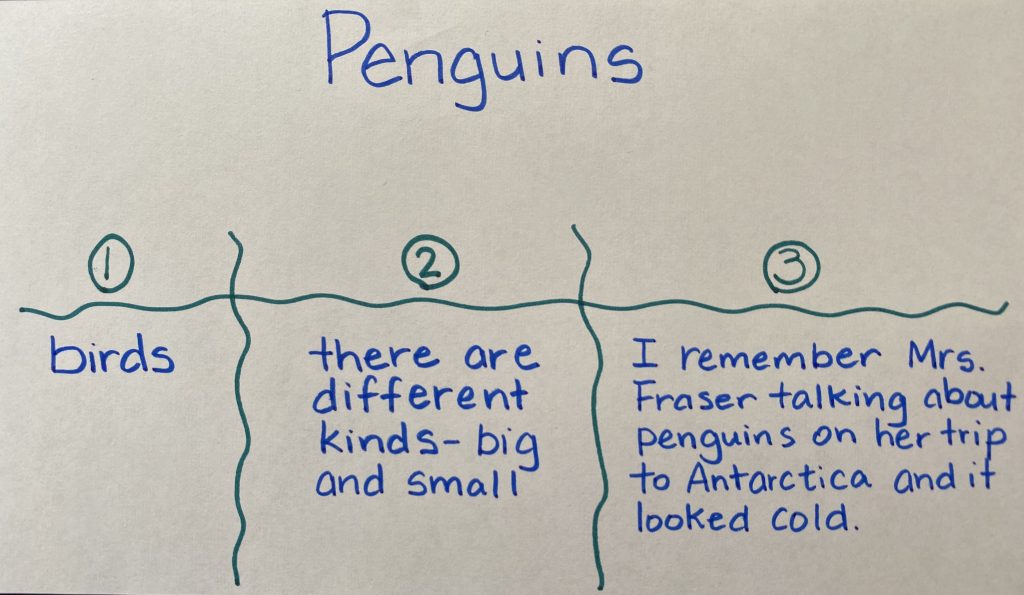 Penguins
1
birds
2
there are
different
kinds- big
and small
3
I remember Mrs.
Fraser talking about
penguins on her trip
to Antarctica and it
looked cold.